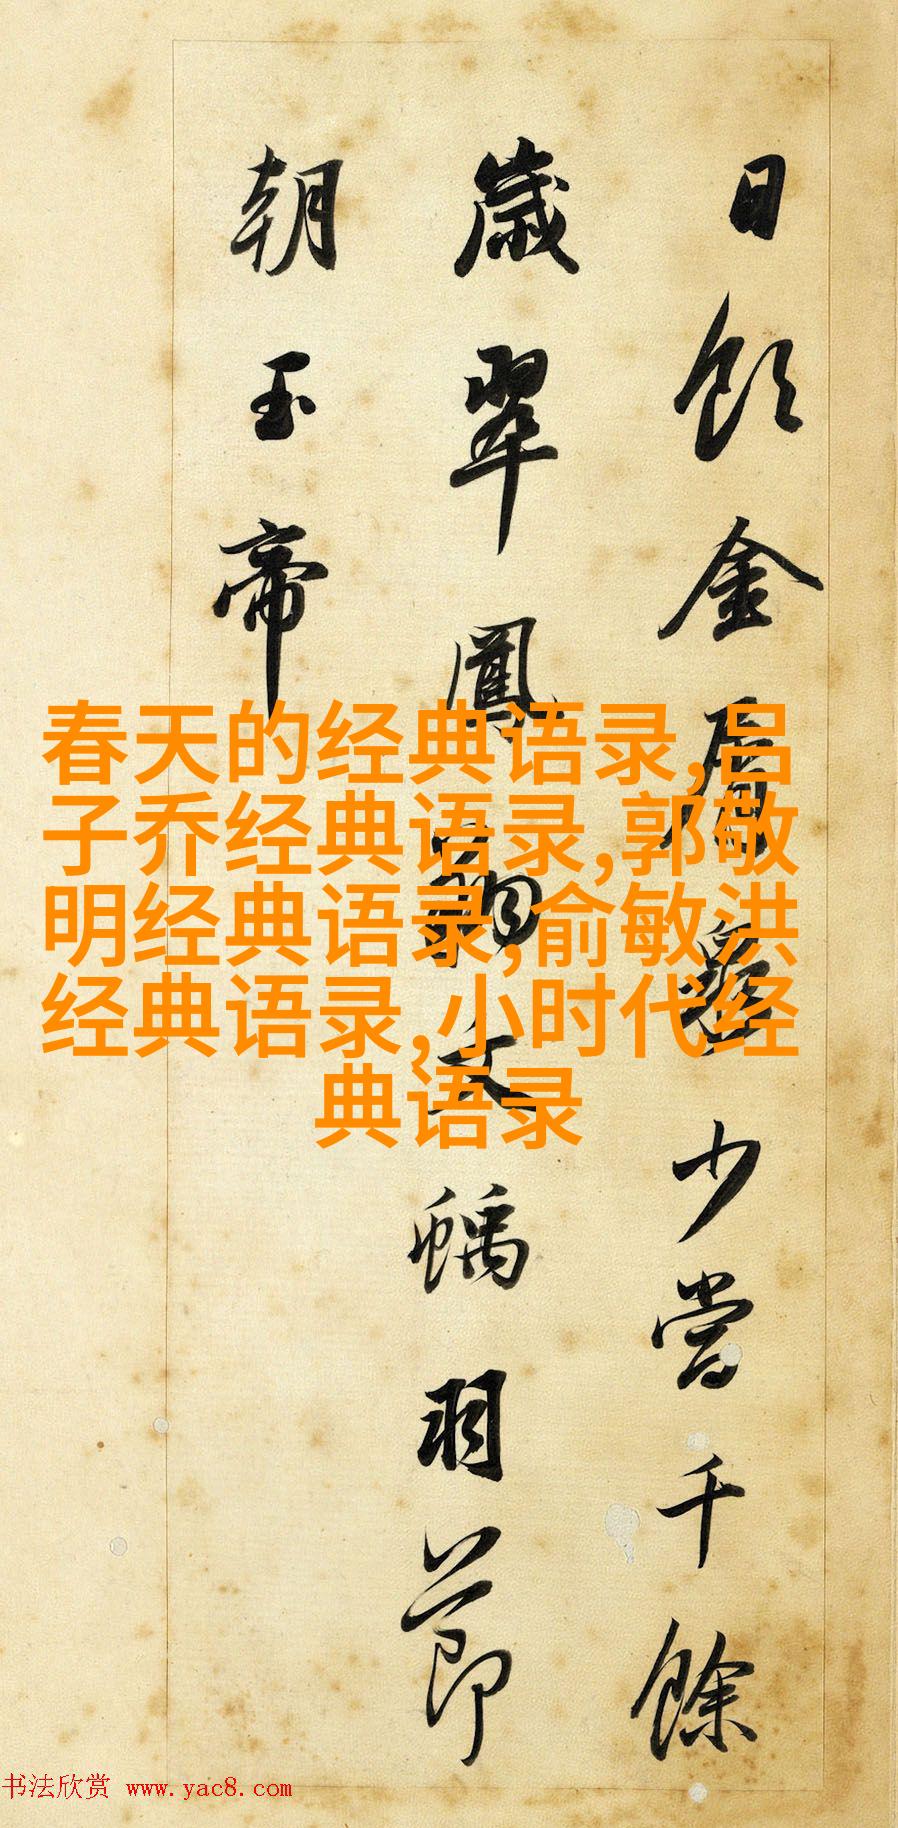 日飲金屑少當千餘
歲翠鳳翊文螭羽節
朝玉帝
春天的经典语录,吕
子乔经典语录,郭敬
明经典语录,俞敏洪
经典语录,小时代经
典语录
书法欣赏 www.yac8.com